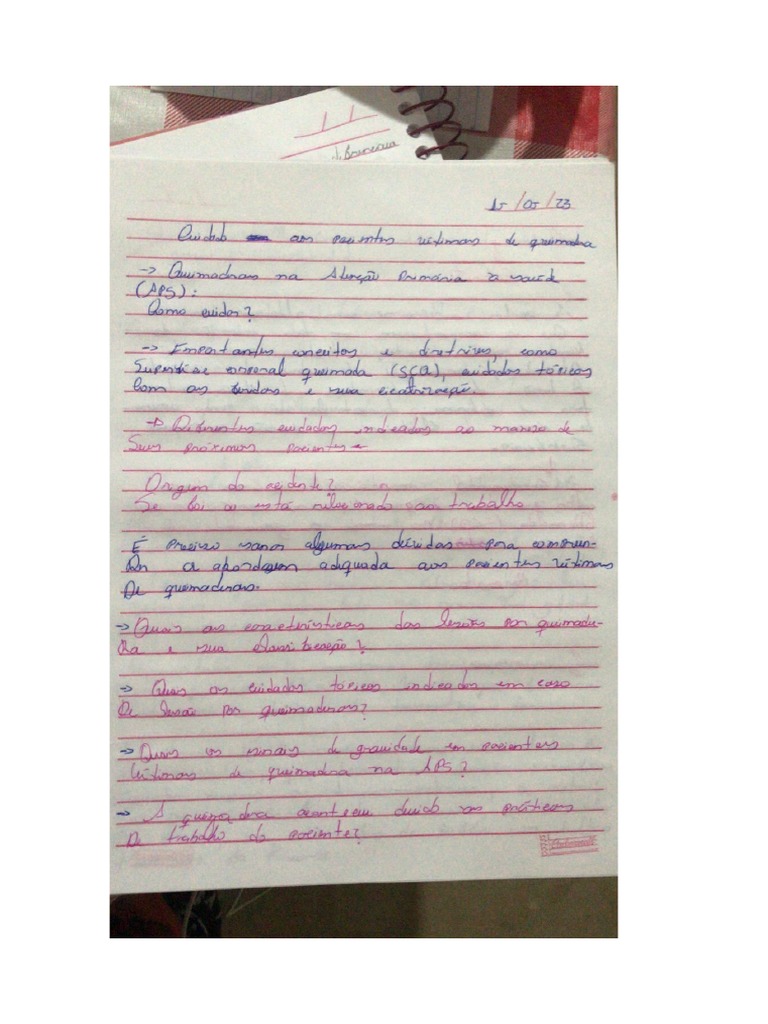 15/05/23
Cuidado aos pacientes vítimas de queimadura
-> Queimaduras na Atenção Primária à saúde
(APS):
Como cuidar?
-> Importantes conceitos e diretrizes, como
Superfície corporal queimada (SCQ), cuidados tópicos
Com as feridas e sua cicatrização.
-> Diferentes cuidados indicados ao manejo de
Seus próximos pacientes
Origem do acidente?
Se foi ou está relacionado ao trabalho
É preciso sanar algumas dúvidas para compreen-
Der a abordagem adequada aos pacientes vítimas
De queimaduras.
-> Quais as características das lesões por queimadu-
Ra e sua classificação?
-> Quais os cuidados tópicos indicados em caso
De lesão por queimaduras?
-> Quais os sinais de gravidade em pacientes
Vítimas de queimadura na APS?
-> A queimadura aconteceu devido as práticas
De trabalho do paciente?